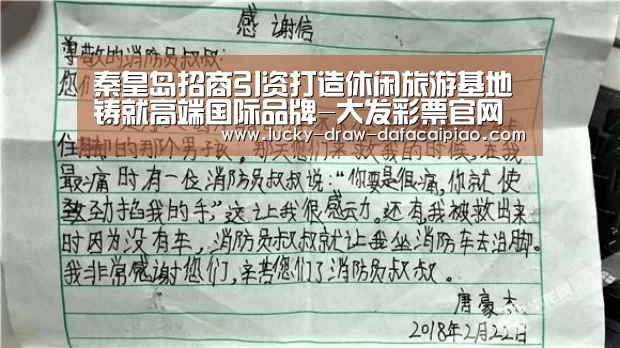 感谢信
尊敬的消防员叔叔:
您们
秦皇岛招商引资打造休闲旅游基地
铸就高端国际品牌-大发彩票官网
www.lucky-draw-dafacaipiao.com
住脚的那个男子孩。那天您们来救我的时候,在我
最痛时有一位消防员叔叔说:“你要是很痛,你就使
致劲掐我的手”,这让我很感动。还有,我被救出来
时因为没有车,消防员叔叔就让我坐消防车去治脚。
我非常感谢您们,辛苦您们了消防员叔叔。
唐豪杰
2018年2月22日